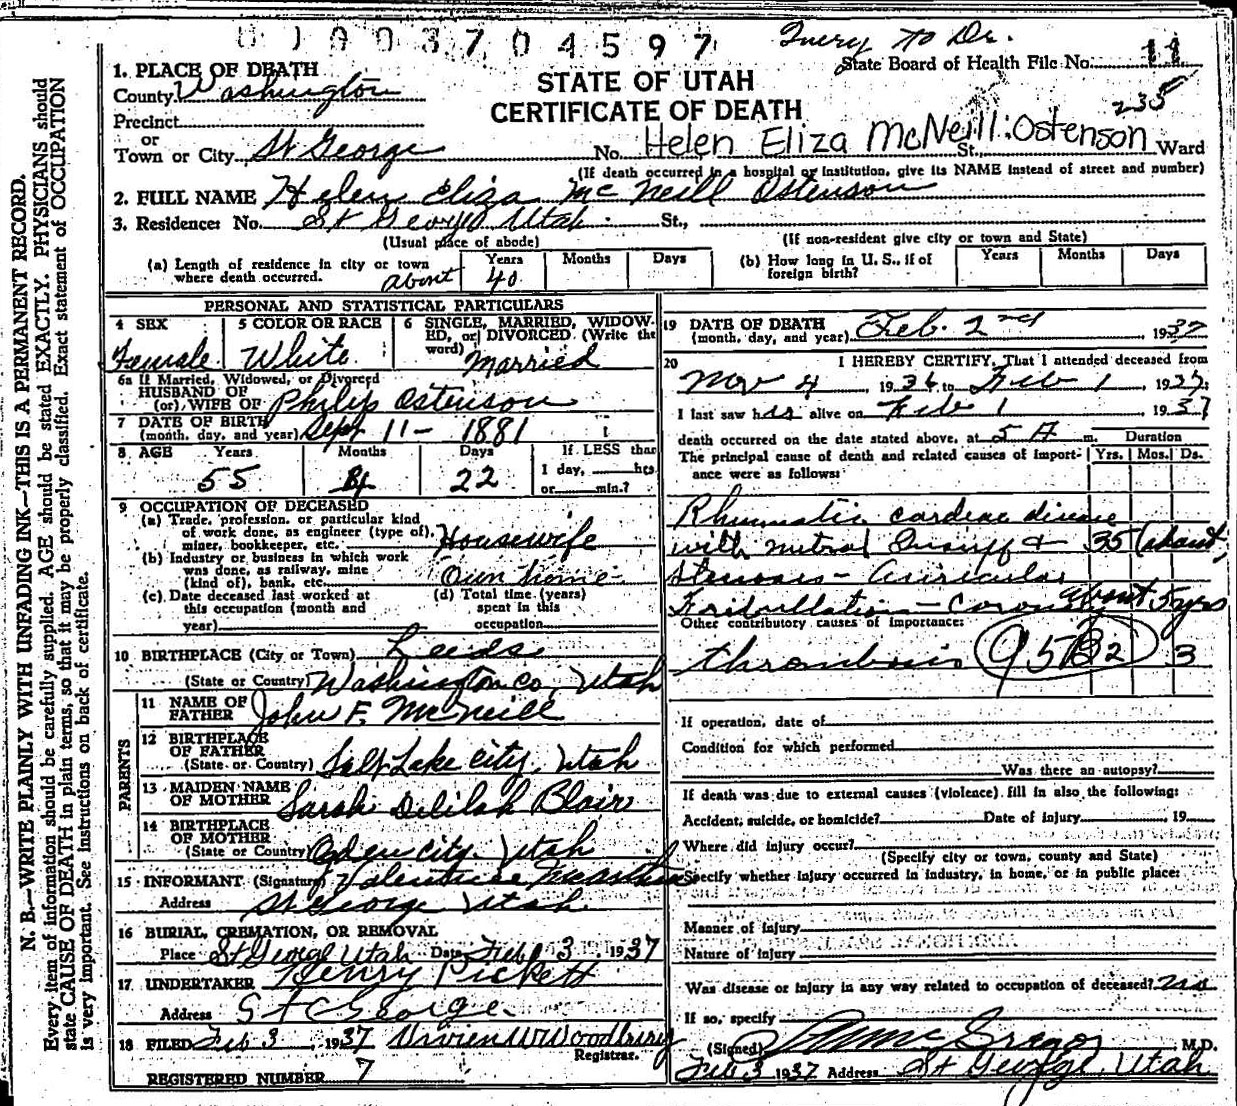 0 1 0 0 3 7 0 4 5 9 7
Query to Dr.
State Board of Health File No. 11
235
STATE OF UTAH
CERTIFICATE OF DEATH
1. PLACE OF DEATH
County Washington
Precinct
or
Town or City St George No. Helen Eliza McNeill Ostenson St., Ward
(If death occurred in a hospital or institution, give its NAME instead of street and number)
2. FULL NAME Helen Eliza Mc Neill Ostenson
3. Residence: No. St George Utah St.,
(Usual place of abode) (If non-resident give city or town and State)
(a) Length of residence in city or town where death occurred. about Years 40 Months Days
(b) How long in U. S., if of foreign birth? Years Months Days
PERSONAL AND STATISTICAL PARTICULARS
4 SEX Female
5 COLOR OR RACE White
6 SINGLE, MARRIED, WIDOWED, or DIVORCED (Write the word) Married
6a If Married, Widowed, or Divorced
HUSBAND OF
(or) WIFE OF Philip Ostenson
7 DATE OF BIRTH
(month, day, and year) Sept 11 - 1881
8 AGE Years 55 Months 4 Days 22
If LESS than
1 day, hrs.
or min.?
9 OCCUPATION OF DECEASED
(a) Trade, profession, or particular kind
of work done, as engineer (type of),
miner, bookkeeper, etc. Housewife
(b) Industry or business in which work
was done, as railway, mine
(kind of), bank, etc. Own home
(c) Date deceased last worked at
this occupation (month and
year)
(d) Total time (years)
spent in this
occupation
10 BIRTHPLACE (City or Town) Leeds
(State or Country) Washington Co, Utah
PARENTS
11 NAME OF
FATHER John F. McNeill
12 BIRTHPLACE
OF FATHER
(State or Country) Salt Lake City, Utah
13 MAIDEN NAME
OF MOTHER Sarah Delilah Blair
14 BIRTHPLACE
OF MOTHER
(State or Country) Ogden City, Utah
15 INFORMANT (Signature) Valentine
Address St George Utah
16 BURIAL, CREMATION, OR REMOVAL
Place St George Utah Date Feb 3 1937
17 UNDERTAKER Henry Pickett
Address St George
18 FILED Feb 3, 1937 Vivien W Woodbury
Registrar.
REGISTERED NUMBER 7
19 DATE OF DEATH
(month, day, and year) Feb. 2nd 1937
20 I HEREBY CERTIFY, That I attended deceased from
Nov 4 1936 to Feb 1, 1937
I last saw her alive on Feb 1 1937
death occurred on the date stated above, at 5 A m.
Duration
The principal cause of death and related causes of importance were as follows: Yrs. Mos. Ds.
Rheumatic cardiac disease
with mitral Insuff & 35 (about)
Stenosis - Auricular
Fribullation - Coronary about 5 yrs
Other contributory causes of importance:
thrombosis 95B2 3
If operation, date of
Condition for which performed
Was there an autopsy?
If death was due to external causes (violence) fill in also the following:
Accident, suicide, or homicide? Date of injury 19
Where did injury occur?
(Specify city or town, county and State)
Specify whether injury occurred in industry, in home, or in public place:
Manner of injury
Nature of injury
Was disease or injury in any way related to occupation of deceased? no
If so, specify
(Signed) McGregor M.D.
Feb 3 1937 Address St George, Utah
N. B.—WRITE PLAINLY WITH UNFADING INK—THIS IS A PERMANENT RECORD.
Every item of information should be carefully supplied. AGE should be stated EXACTLY. PHYSICIANS should
state CAUSE OF DEATH in plain terms, so that it may be properly classified. Exact statement of OCCUPATION
is very important. See instructions on back of certificate.